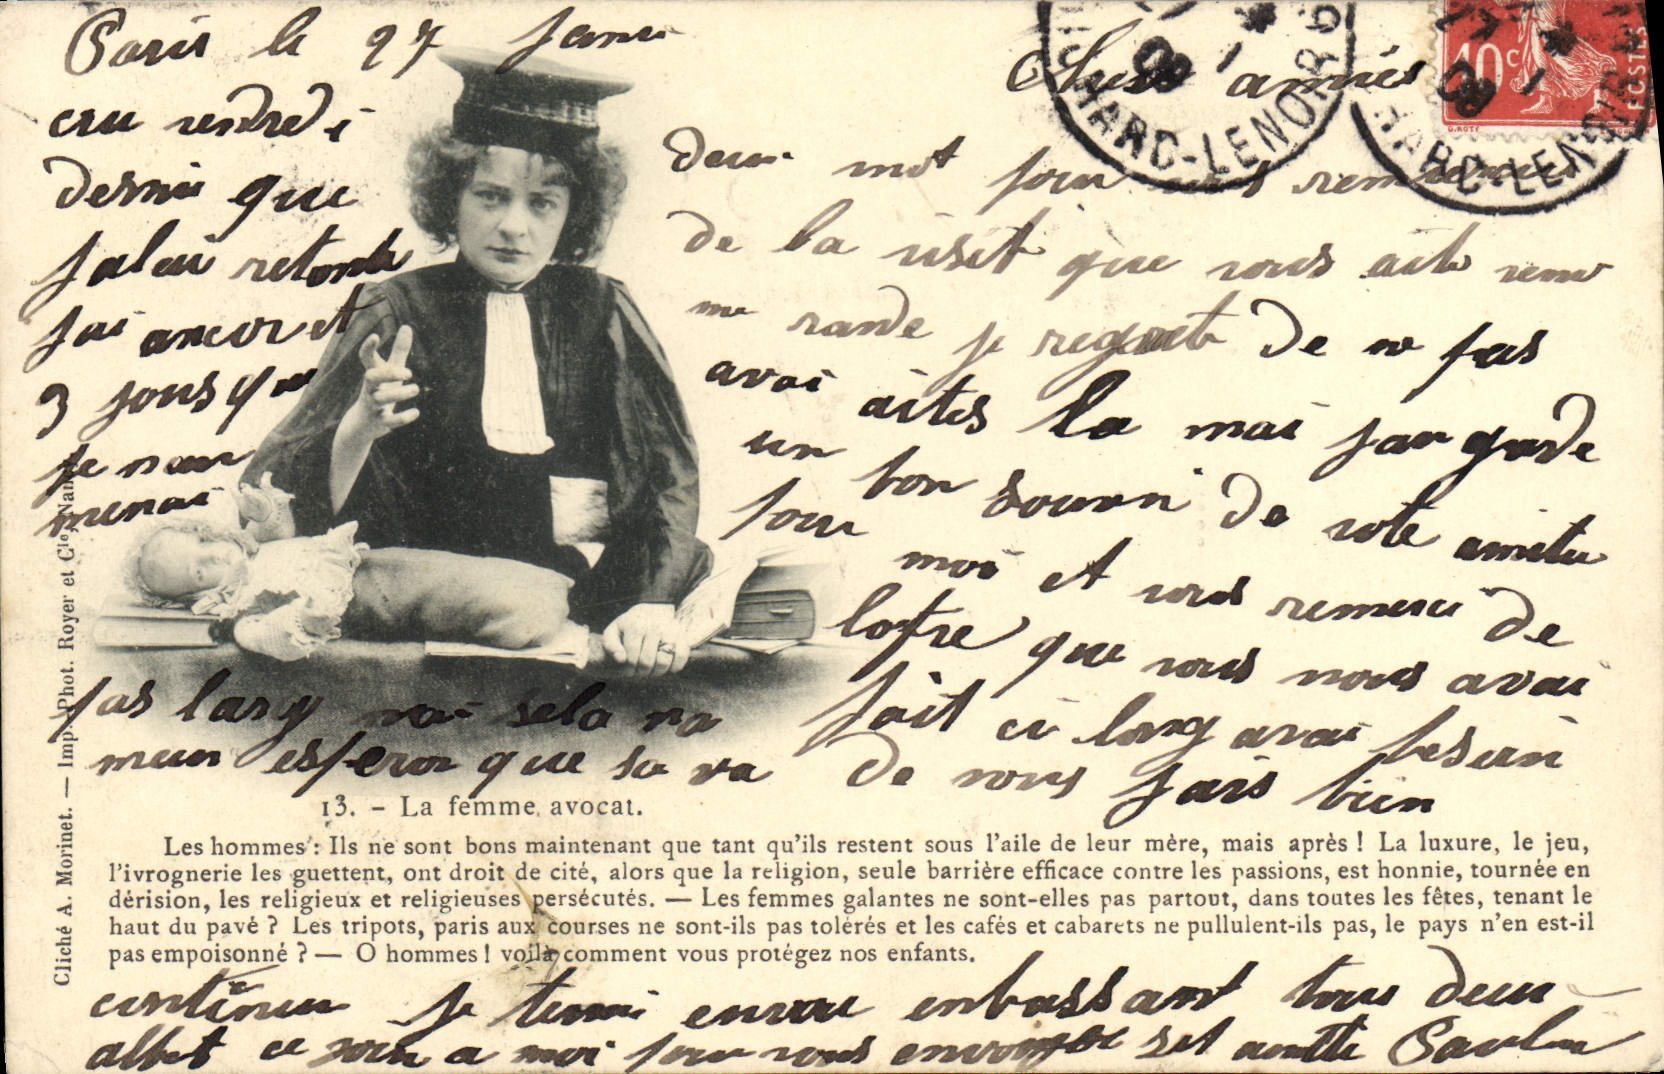 Paris le 27 Janvi
Chers amies
cru vendredi
dernie que
jalai retonbe
jai ancor et
3 jours que
je
menai
Deux mot pour vous
de la visit que vous aite venu
me rande je regraite de ne pas
avoi aites la mai jan garde
un bon souvni de vote amitie
pour moi et vous remerci de
lofre que vous nous avai
fait ci long avai besuin
de vous sais bien
pas larg mai sela va
mieux esperon que sa va
13. - La femme avocat.
Les hommes : Ils ne sont bons maintenant que tant qu'ils restent sous l'aile de leur mère, mais après ! La luxure, le jeu,
l'ivrognerie les guettent, ont droit de cité, alors que la religion, seule barrière efficace contre les passions, est honnie, tournée en
dérision, les religieux et religieuses persécutés. — Les femmes galantes ne sont-elles pas partout, dans toutes les fêtes, tenant le
haut du pavé ? Les tripots, paris aux courses ne sont-ils pas tolérés et les cafés et cabarets ne pullulent-ils pas, le pays n'en est-il
pas empoisonné ? — O hommes ! voilà comment vous protégez nos enfants.
continuer je temine en vous enbrassant tous deux
albert ce join a moi pour vous envoyer set Paulin
Cliché A. Morinet. — Imp. Phot. Royer et Cie, Nancy
10c
POSTES
O. ROTY
HARD-LENOIR
08
HARD-LENOIR
08